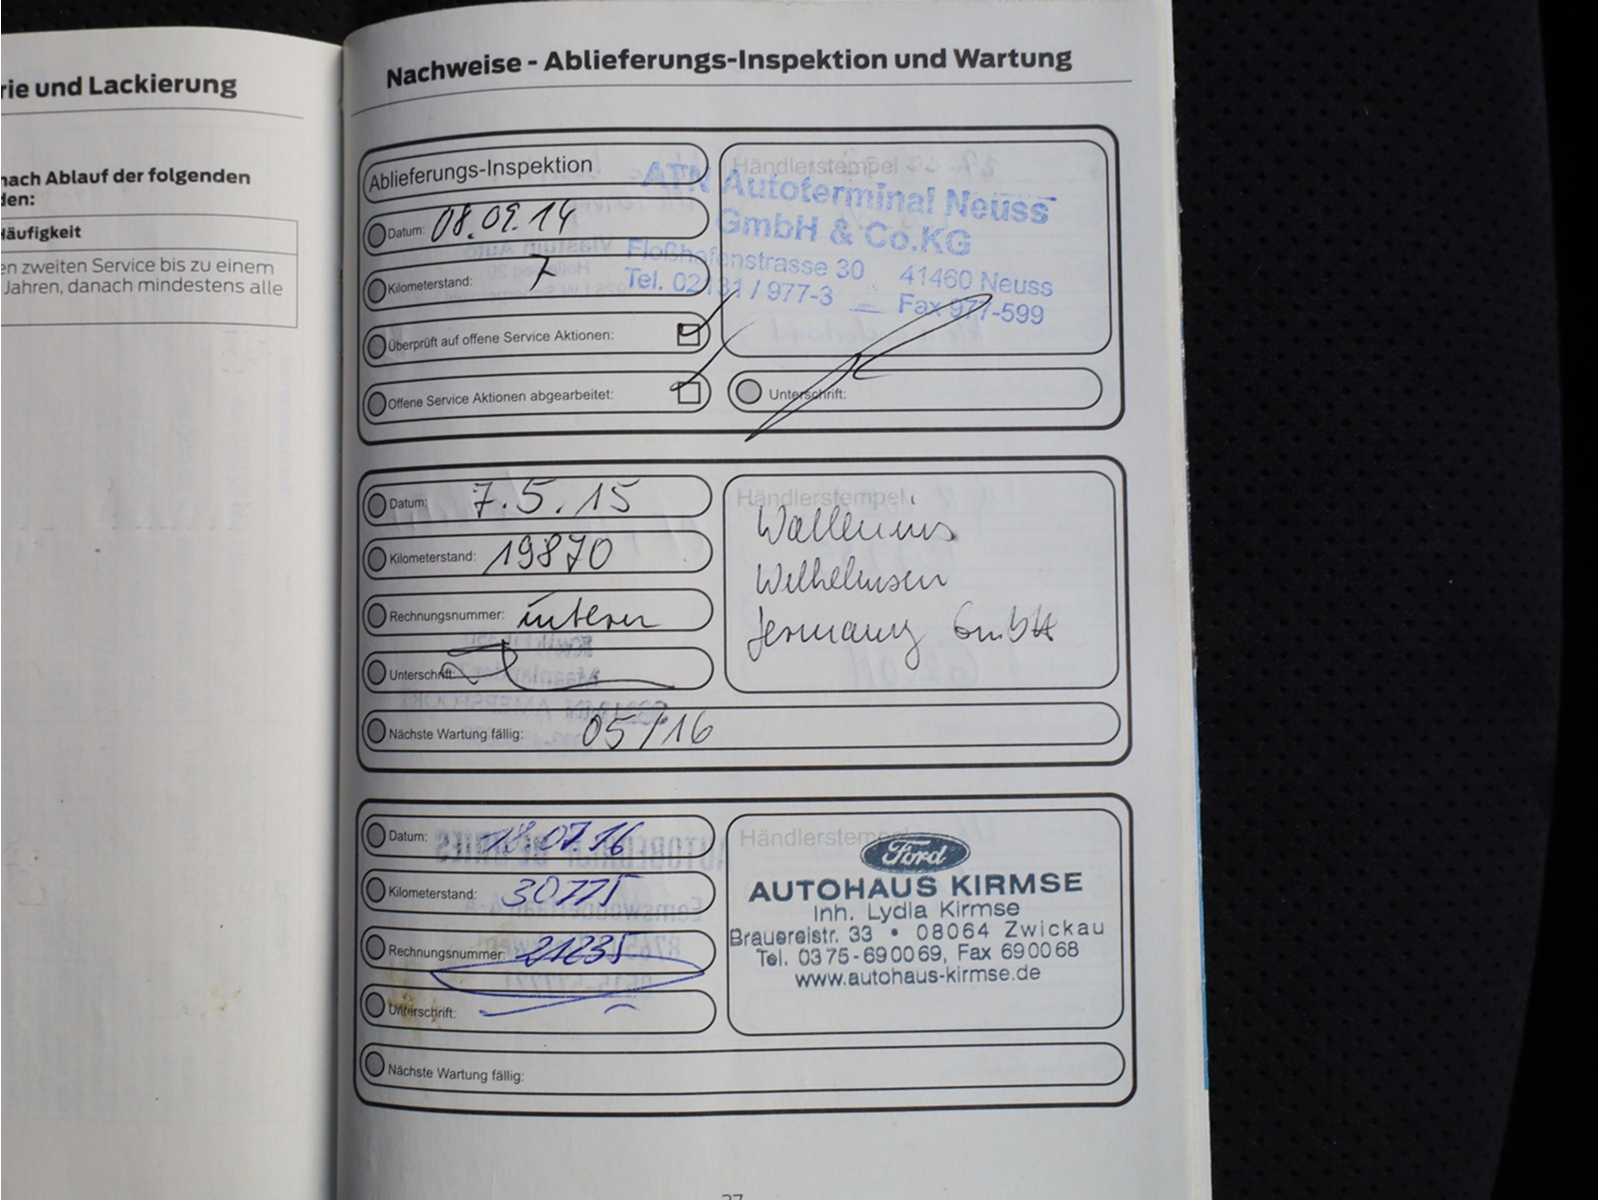 rie und Lackierung
nach Ablauf der folgenden
den:
Häufigkeit
en zweiten Service bis zu einem
Jahren, danach mindestens alle
Nachweise - Ablieferungs-Inspektion und Wartung
Ablieferungs-Inspektion
Datum: 08.09.14
Kilometerstand: 7
Überprüft auf offene Service Aktionen:
Offene Service Aktionen abgearbeitet:
Händlerstempel
ATN Autoterminal Neuss
GmbH & Co.KG
Floßhafenstrasse 30 41460 Neuss
Tel. 02131 / 977-3 — Fax 977-599
Unterschrift:
Datum: 7.5.15
Kilometerstand: 19870
Rechnungsnummer: intern
Unterschrift:
Händlerstempel
Wallenius
Wilhelmsen
Germany GmbH
Nächste Wartung fällig: 05/16
Datum: 18.07.16
Kilometerstand: 30775
Rechnungsnummer: 21235
Unterschrift:
Händlerstempel
Ford
AUTOHAUS KIRMSE
Inh. Lydia Kirmse
Brauereistr. 33 • 08064 Zwickau
Tel. 0375-690069, Fax 690068
www.autohaus-kirmse.de
Nächste Wartung fällig: